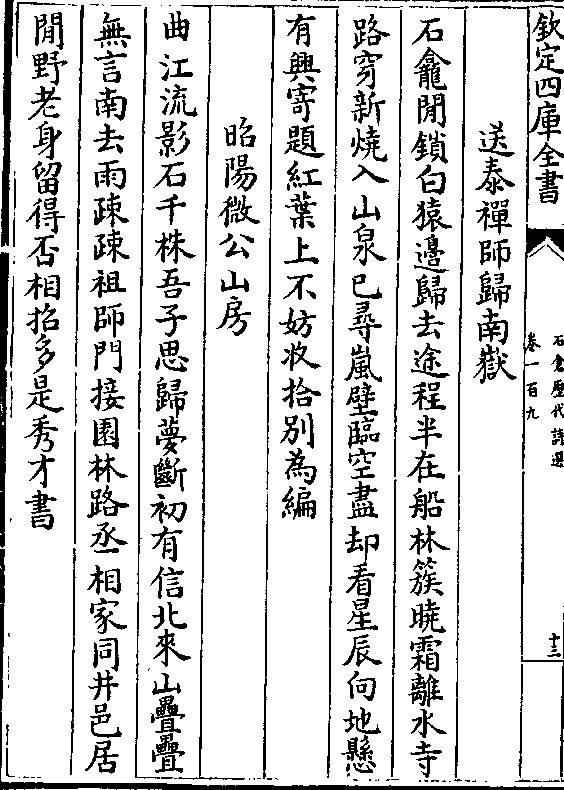 欽定四庫全書
石倉歷代詩選
卷一百九
十三
送泰禪師歸南嶽
石龕閒鎖白猿邊歸去途程半在船林簇曉霜離水寺
路穿新燒入山泉已尋嵐壁臨空盡却看星辰向地懸
有興寄題紅葉上不妨收拾別為編
昭陽微公山房
曲江流影石千株吾子思歸夢斷初有信北來山疊疊
無言南去雨疎疎祖師門接園林路丞相家同井邑居
閒野老身留得否相招多是秀才書